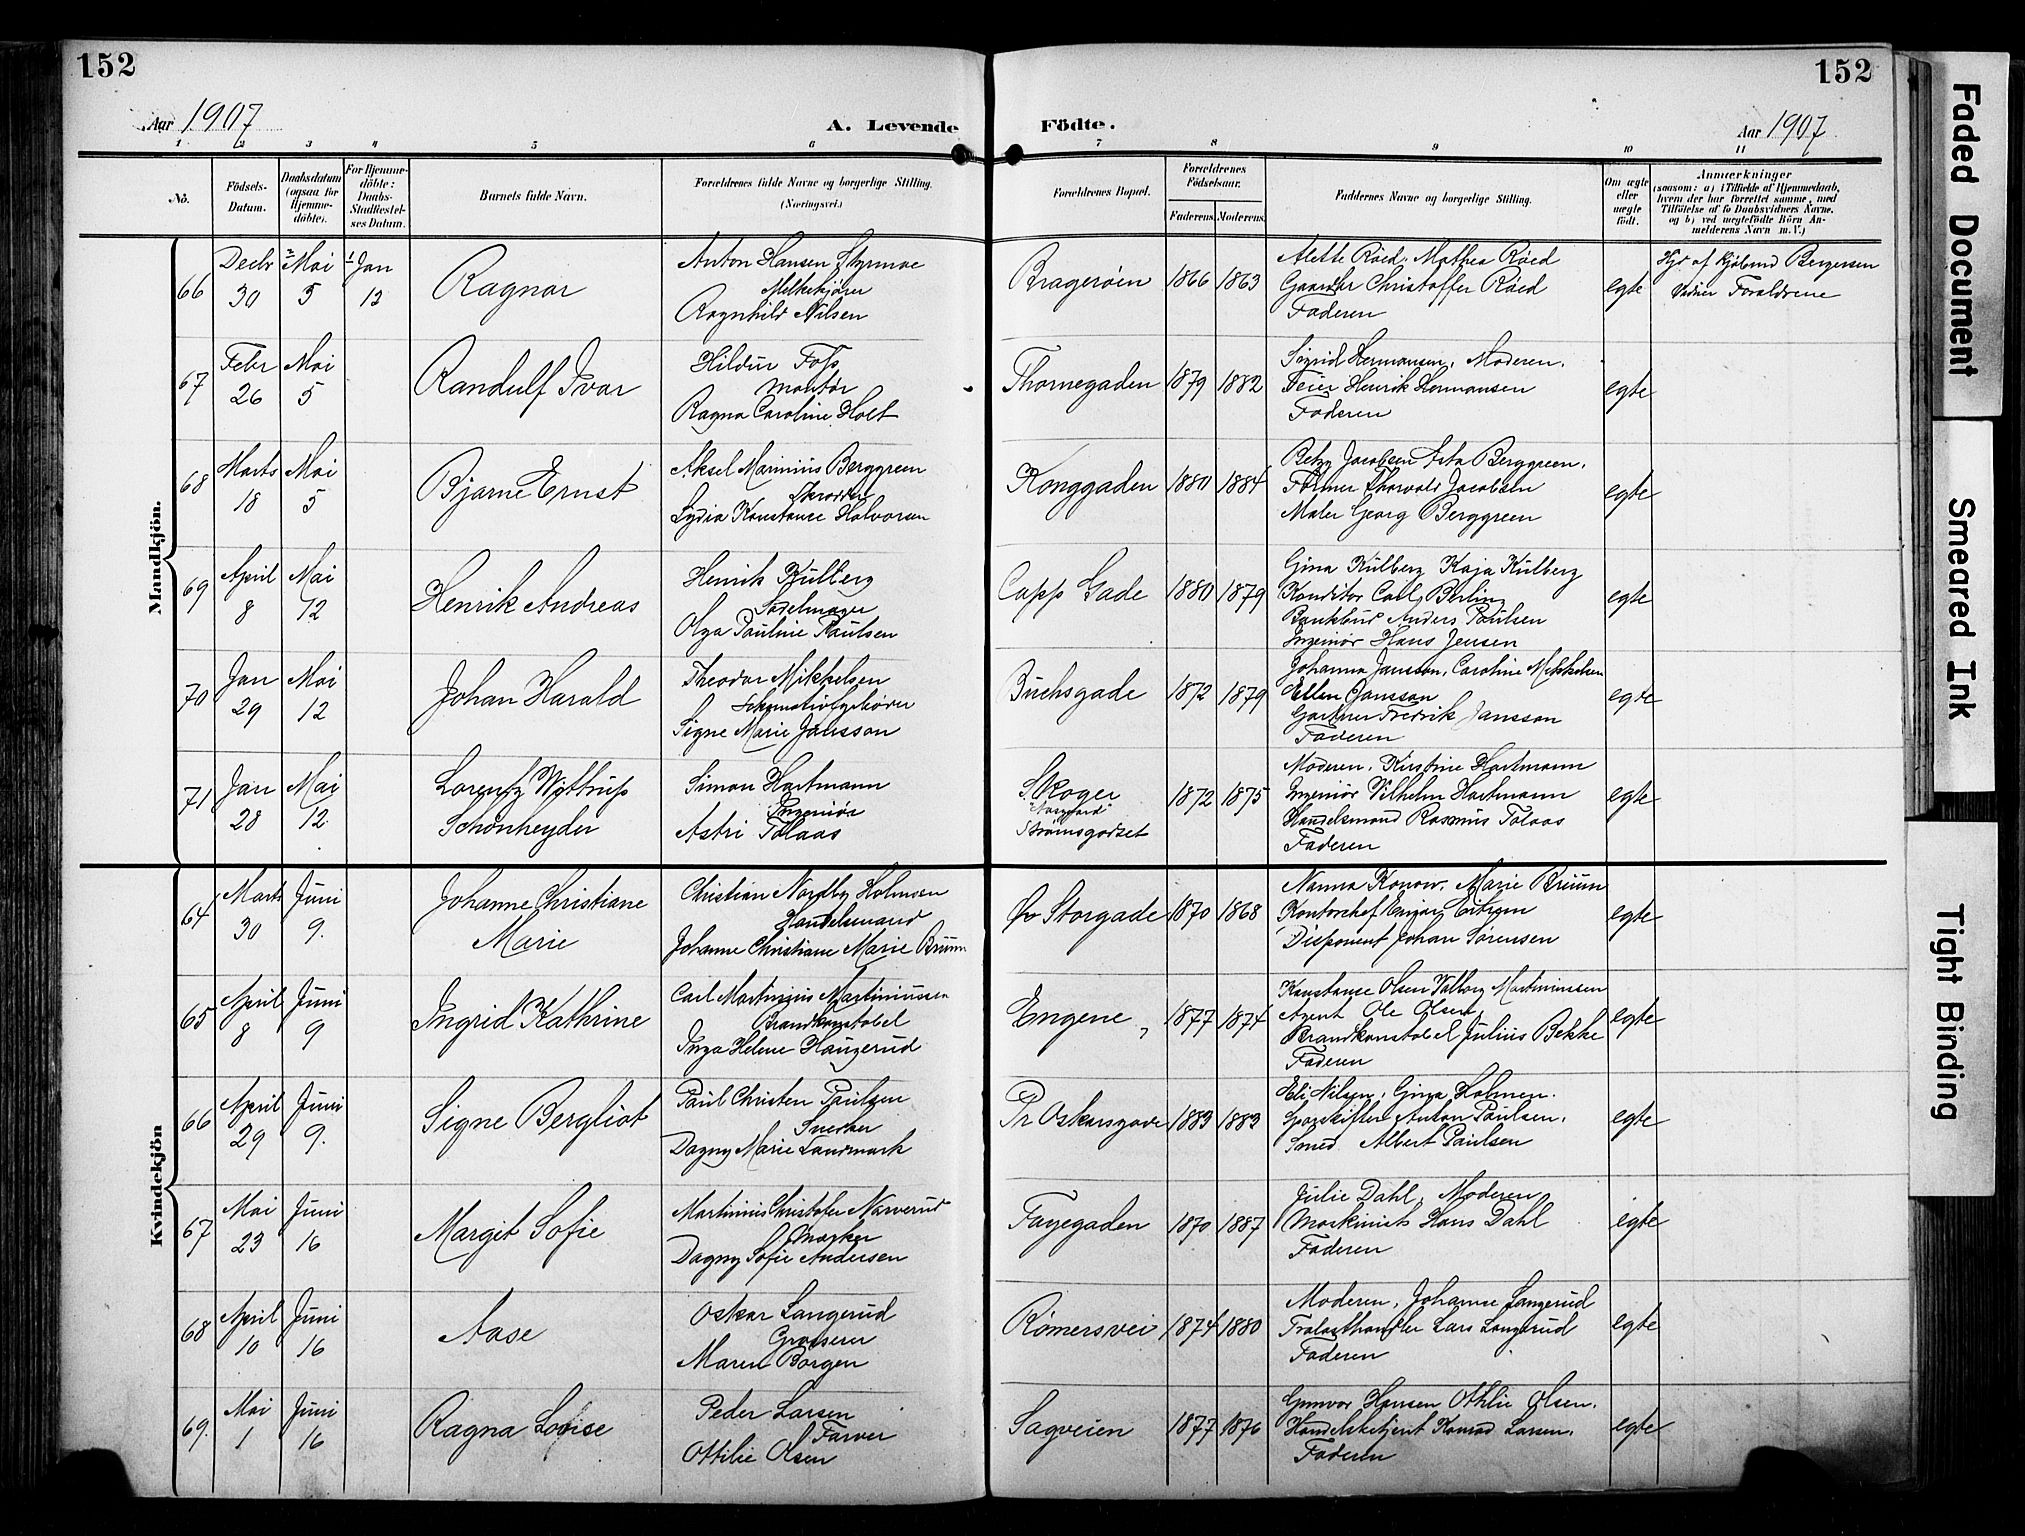 152
152
Aar 1907
A. Levende Födte.
Aar 1907
1 2 3 4 5 6 7 8 9 10 11
No.
Födsels-Datum.
Daabsdatum (ogsaa for Hjemme-döbte).
For Hjemme-döbte: Daabs-Stadfæstel-ses Datum.
Barnets fulde Navn.
Forældrenes fulde Navne og borgerlige Stilling. (Næringsvei.)
Forældrenes Bopæl.
Forældrenes Födselsaar.
Faderens. Moderens.
Faddernes Navne og borgerlige Stilling.
Om ægte eller uægte födt.
Anmærkninger
(saasom: a) i Tilfælde af Hjemmedaab, hvem der har forrettet samme, med Tilföielse af to Daabsvidners Navne, og b) ved uægtefödte Börn An-melderens Navn m. V.)
Mandkjön.
66 Decbr 30 Mai 5 Jan 13
Ragnar
Anton Hansen
Melkekjører
Ragnhild Nilsen
Bragerøen 1866 1863
Alette Röed, Mathea Röed
Gaardbr Christoffer Röed
Faderen
egte
Bergersen
Forældrene
67 Febr 26 Mai 5
Randulf Ivar
Hildur Foss
Montør
Ragna Caroline Holt
Thornegaden 1879 1882
Sigrid Hermansen, Moderen.
Feier Henrik Hermansen
Faderen
egte
68 Marts 18 Mai 5
Bjarne Ernst
Aksel Marinius Berggreen
Skrædder
Lydia Konstance Halvorsen
Konggaden 1880 1884
Betzy Jacobsen Asta Berggreen.
Former Thorvald Jacobsen
Maler Georg Berggreen
egte
69 April 8 Mai 12
Henrik Andreas
Henrik Kulberg
Sadelmager
Olga Pauline Paulsen
Capp Gade 1880 1879
Gina Kulberg Kaja Kulberg
Konditor Carl Berlin
Bankbud Anders Paulsen
Ingeniør Hans Jensen
egte
70 Jan 29 Mai 12
Johan Harald
Theodor Mikkelsen
Signe Marie Jansson
Buchsgade 1872 1879
Johanna Jansson, Caroline Mikkelsen
Ellen Jansson
Gartner Fredrik Jansson
Faderen
egte
71 Jan 28 Mai 12
Lorentz Wittrup
Schønheyder
Simon Hartmann
Ingeniør
Astri Tolaas
Skoger
Strømsgodset
1872 1875
Moderen, Kirstine Hartmann
Ingeniør Vilhelm Hartmann
Handelsmand Rasmus Tolaas
Faderen
egte
Kvindekjön
64 Marts 30 Juni 9.
Johanne Christiane
Marie
Christian Nordby Holmsen
Handelsmand
Johanne Christiane Marie Bruun
Øv Storgade 1870 1868
Nanna Konow, Marie Bruun
Kontorchef Einar
Disponent Johan Sørensen
egte
65 April 8 Juni 9
Ingrid Kathrine
Carl Martinius Martiniussen
Brandkonstabel
Inga Helene Haugerud
Engene 1877 1874
Konstanse Olsen Valborg Martiniussen
Agent Ole Olsen,
Brandkonstabel Julius Bekke
Faderen
egte
66 April 29 Juni 9.
Signe Bergliot
Paul Christen Paulsen
Snedker
Dagny Marie Landmark
Pr Oskarsgade 1883 1883
Eli Nilsen, Gina Holmen.
Sporskifter Anton Paulsen.
Smed Albert Paulsen
egte
67 Mai 23 Juni 16
Margit Sofie
Martinius Christofer Narverud
Dagny Sofie Andersen
Fayegaden 1870 1887
Julie Dahl, Moderen
Maskinist Hans Dahl
Faderen
egte
68 April 10 Juni 16
Aase
Oskar Langerud
Grosserer
Maren Borgen
Rømersvei 1874 1880
Moderen, Johanne Langerud
Trælasthandler Lars Langerud
Faderen
egte
69. Mai 1 Juni 16
Ragna Lovise
Peder Larsen
Farver
Ottilie Olsen
Sagveien 1877 1876
Gunvor Hansen Othlie Olsen.
Handelsbetjent Konrad Larsen.
Faderen
egte
Faded Document
Smeared Ink
Tight Binding